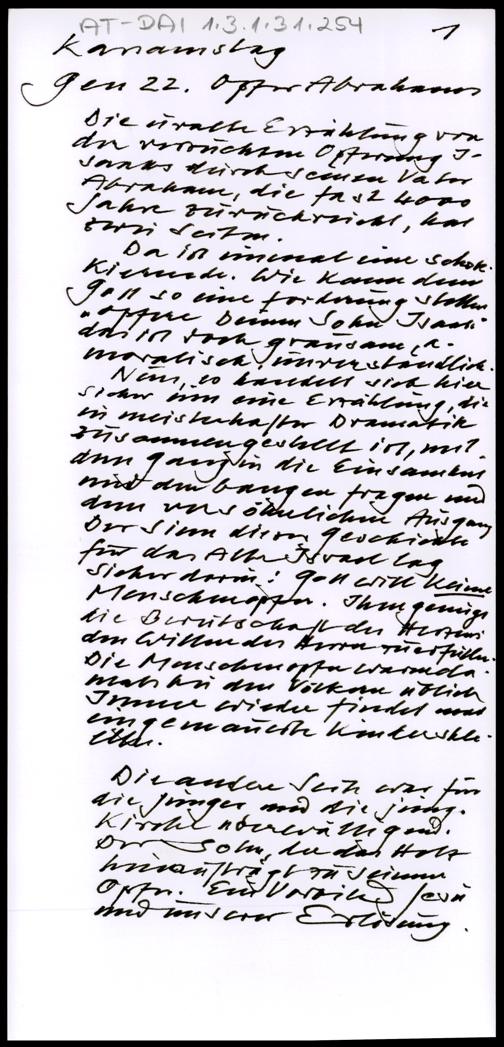 AT-DAI 1.3.1.31.254
1
Karsamstag
Gen 22. Opfer Abrahams
Die uralte Erzählung von
der versuchten Opferung I-
saaks durch seinen Vater
Abraham, die fast 4000
Jahre zurückreicht, hat
zwei Seiten.
Da ist einmal eine schok-
kierende. Wie kann denn
Gott so eine Forderung stellen
"Opfere Deinen Sohn Isaak"
das ist doch grausam, u.
moralisch unverständlich.
Nun, es handelt sich hier
sicher um eine Erzählung, die
in meisterhafter Dramatik
zusammengestellt ist, mit
dem Gang in die Einsamkeit
und den bangen Fragen und
dem versöhnlichen Ausgang
Der Sinn dieser Geschichte
für das Alte Israel lag
sicher darin: Gott will keine
Menschenopfer. Ihm genügt
die Bereitschaft des Herzens
den Willen des Herrn zu erfüllen.
Die Menschenopfer waren da-
mals bei den Völkern üblich
Immer wieder findet man
eingemauerte Kinderske-
lette.
Die andere Seite war für
die Jünger und die junge
Kirche überwältigend.
Der Sohn, der das Holz
hinaufträgt zu seinem
Opfer. Ein Vorbild Jesu
und unserer Erlösung.